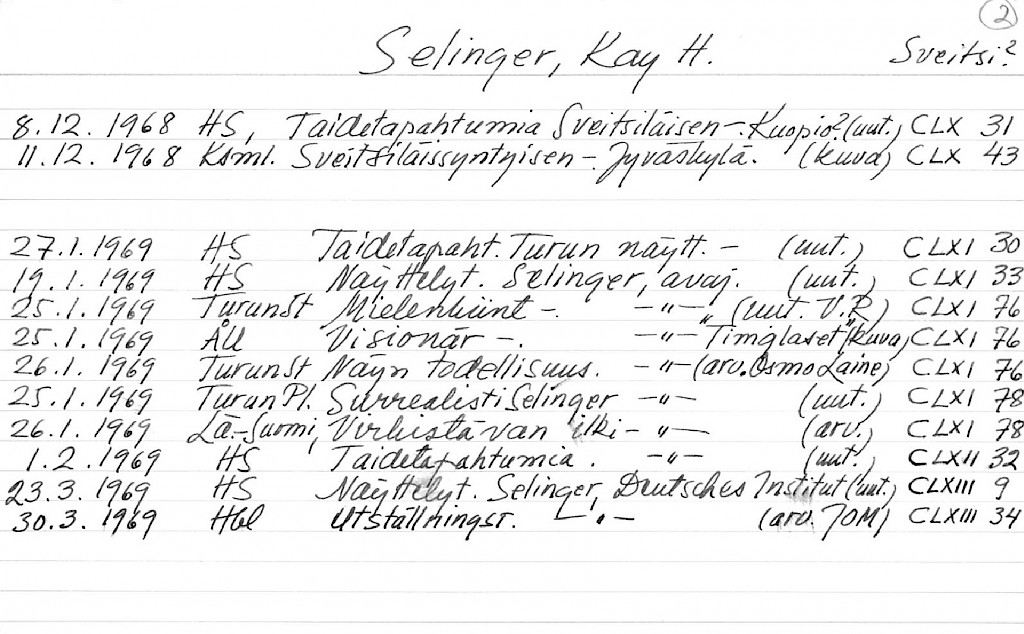 2
Selinger, Kay H. Sveitsi?
8.12.1968 HS, Taidetapahtumia Sveitsiläisen-. Kuopio? (uut.) CLX 31
11.12.1968 Ksml. Sveitsiläissyntyisen-. Jyväskylä. (kuva) CLX 43
27.1.1969 HS Taidetapaht. Turun näytt. - (uut.) CLXI 30
19.1.1969 HS Näyttelyt. Selinger, avaj. (uut.) CLXI 33
25.1.1969 TurunSt Mielenkiint-. -"- (uut. V.R) CLXI 76
25.1.1969 ÅU Visionär-. -"- "Timglaset" (kuva) CLXI 76
26.1.1969 TurunSt Näyn todellisuus. -"- (arv. Osmo Laine) CLXI 76
25.1.1969 TurunPl. Surrealisti Selinger -"- (uut.) CLXI 78
26.1.1969 Lä-Suomi, ilki- -"- (arv.) CLXI 78
1.2.1969 HS Taidetapahtumia. -"- (uut.) CLXII 32
23.3.1969 HS Näyttelyt. Selinger, Deutsches Institut (uut.) CLXIII 9
30.3.1969 Hbl Utställningsr. -"- (arv. JOM) CLXIII 34